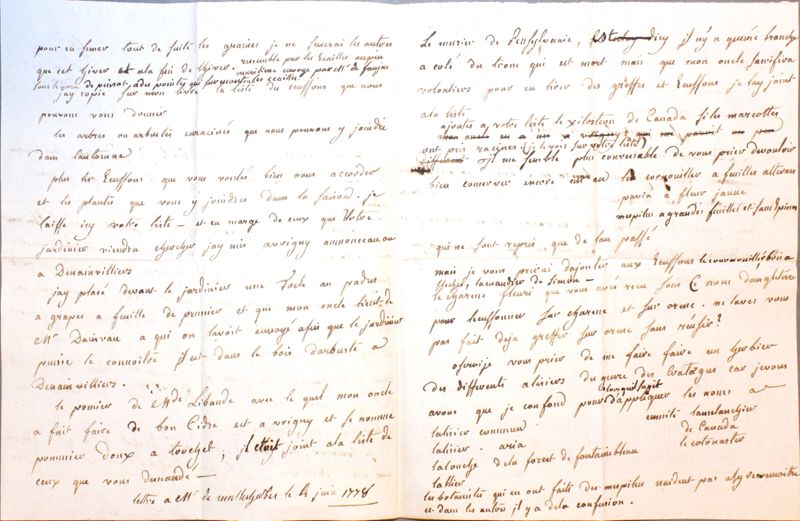 pour en semer tout de suite les graines je ne semerai les autres
que cet hiver et a la fin de l'hiver.
jay copié sur mon livre la liste des ecussons que nous
pouvons vous donner
les arbres ou arbustes enracinés que nous pourrons y joindre
dans l'automne
plus les Ecussons que vous voulés bien nous accorder
et les plantes que vous y joindrés dans la saison. je
laisse icy votre liste — et en marge de ceux que Votre
jardinier viendra chercher jay mis avrigny annonceau ou
a Denainvilliers
jay placé devant le jardinier une Toile au padus
a grapes a feuille de prunier et que mon oncle tient de
Mr Dainvau a qui on l'avoit envoyé afin que le jardinier
puisse le connoitre il est dans le bois d'arbuste a
Denainvilliers.
le pomier de Mde Libaude avec le quel mon oncle
a fait faire de bon Cidre est a vrigny et se nomme
pommier doux a trochet; joint a la liste de
ceux que vous demandé —
lettre a Mr de malesherbes le 4 juin 1778
Le murier de Pensylvanie, dicy il n'y a qu'une branche
a coté du tronc qui est mort mais que mon oncle sacrifira
volontiers pour en tirer des greffes et Ecussons je lay joint
a la liste
ajoutés a votre liste le xilosteon de Canada si les marcottes
ont pris racines (je le vois sur votre liste)
il me semble plus convenable de vous prier de vouloir
bien conserver encore un an le cornouiller a feuilles alternes
pavia a fleur jaune
mespilus a grandes feuilles et sans Epines
qui ne sont repris que de l'an passé
mais je vous prierai d'ajouter aux Ecussons
l'amandier de Simeon —
le charme fleuri que vous avés reçu sous ce nom d'angleterre
pour l'ecussonner sur charme et sur orme. ne l'avés vous
pas fait deja greffer sur orme sans réussir?
oserois je vous prier de me faire faire un herbier
des differents alisiers du genre des Cratægus car je vous
avoue que je confond pour d'appliquer les noms a
lorsqu'il s'agit
l'alisier commun
l'alisier. aria
l'alouche de la forest de fontainebleau
l'amelanchier
de Canada
le cotonaster
les botanistes qui en ont faits des mespilus n'aident pas a s'y reconnoitre
et dans les autres il y a de la confusion.